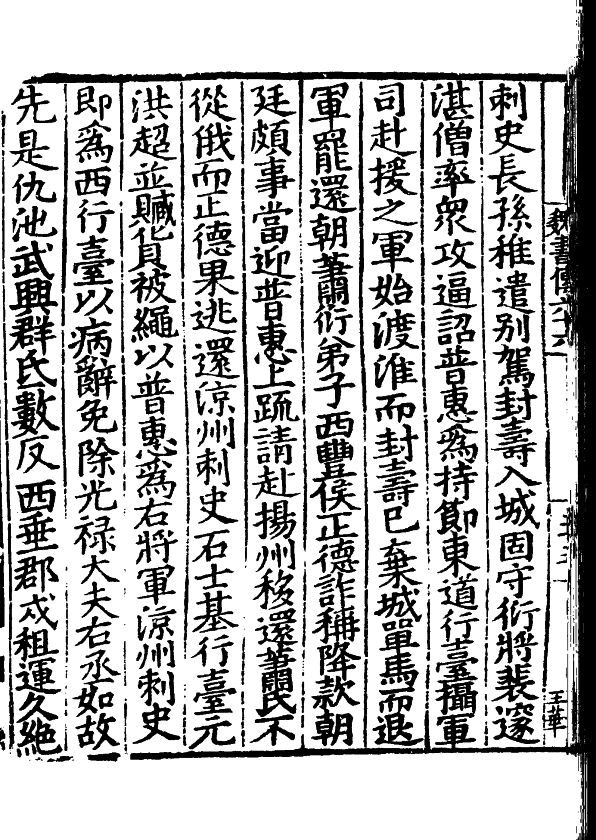 刺史長孫稚遣别駕封壽入城固守衍將裴邃
湛僧率衆攻逼詔普惠爲持節東道行臺攝軍
司赴援之軍始渡淮而封壽已棄城單馬而退
軍罷還朝蕭衍弟子西豐侯正德詐稱降款朝
廷頗事當迎普惠上疏請赴揚州移還蕭氏不
從俄而正德果逃還涼州刺史石士基行臺元
洪超並贓貨被繩以普惠爲右將軍涼州刺史
即爲西行臺以病辭免除光禄大夫右丞如故
先是仇池武興群氐數反西垂郡戍租運久絶
魏書傳六十六
王華